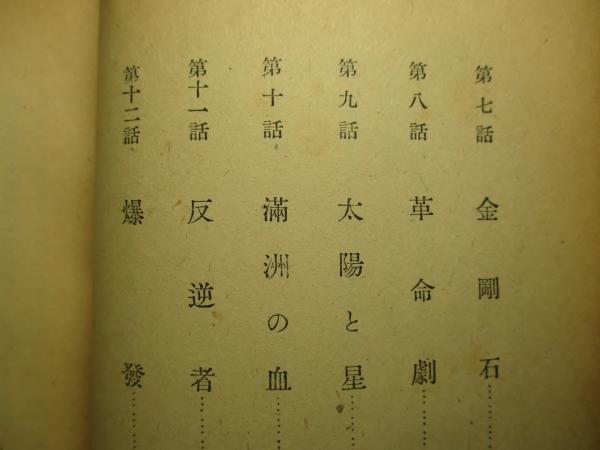 第七話 金剛石………
第八話 革命劇………
第九話 太陽と星………
第十話 滿洲の血………
第十一話 反逆者………
第十二話 爆發………